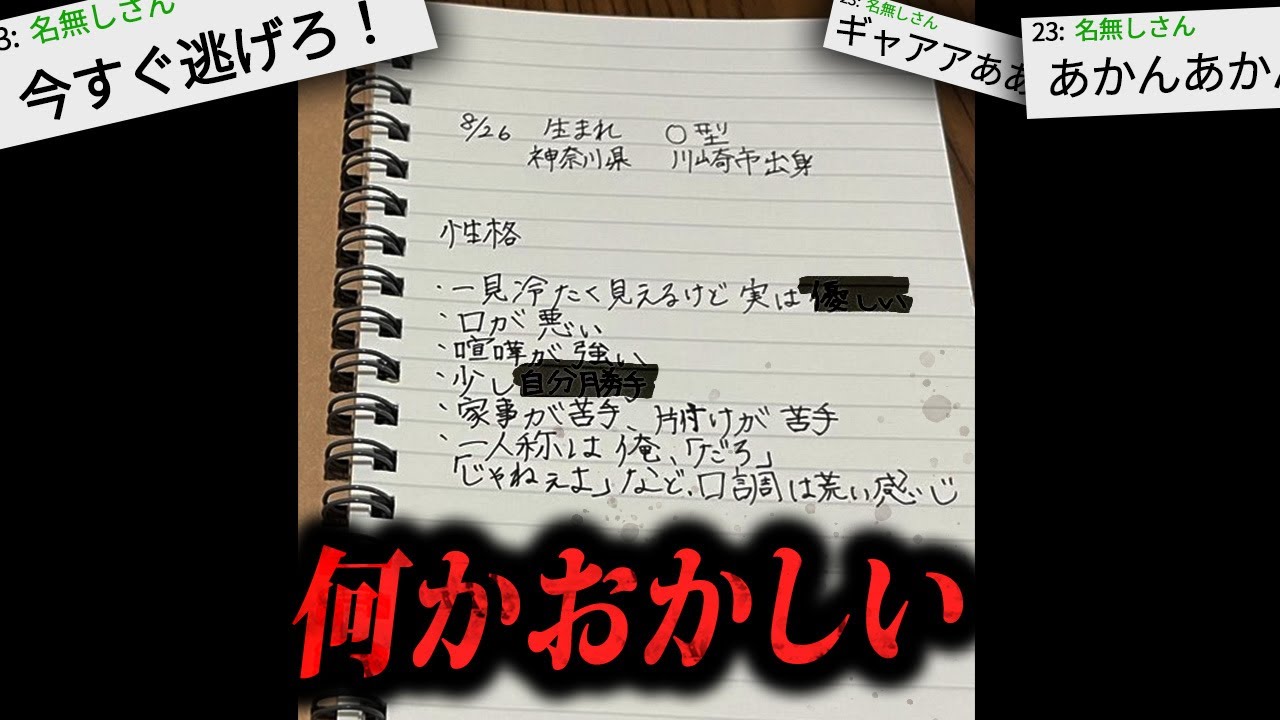 3: 名無しさん
今すぐ逃げろ！
23: 名無しさん
ギャアアああ
23: 名無しさん
あかんあかん
8/26 生まれ ○型
神奈川県 川崎市出身
性格
・一見冷たく見えるけど実は優しい
・口が悪い
・喧嘩が強い
・少し自分勝手
・家事が苦手、片付けが苦手
・一人称は俺、「だろ」
「じゃねぇよ」など、口調は荒い感じ
何かおかしい